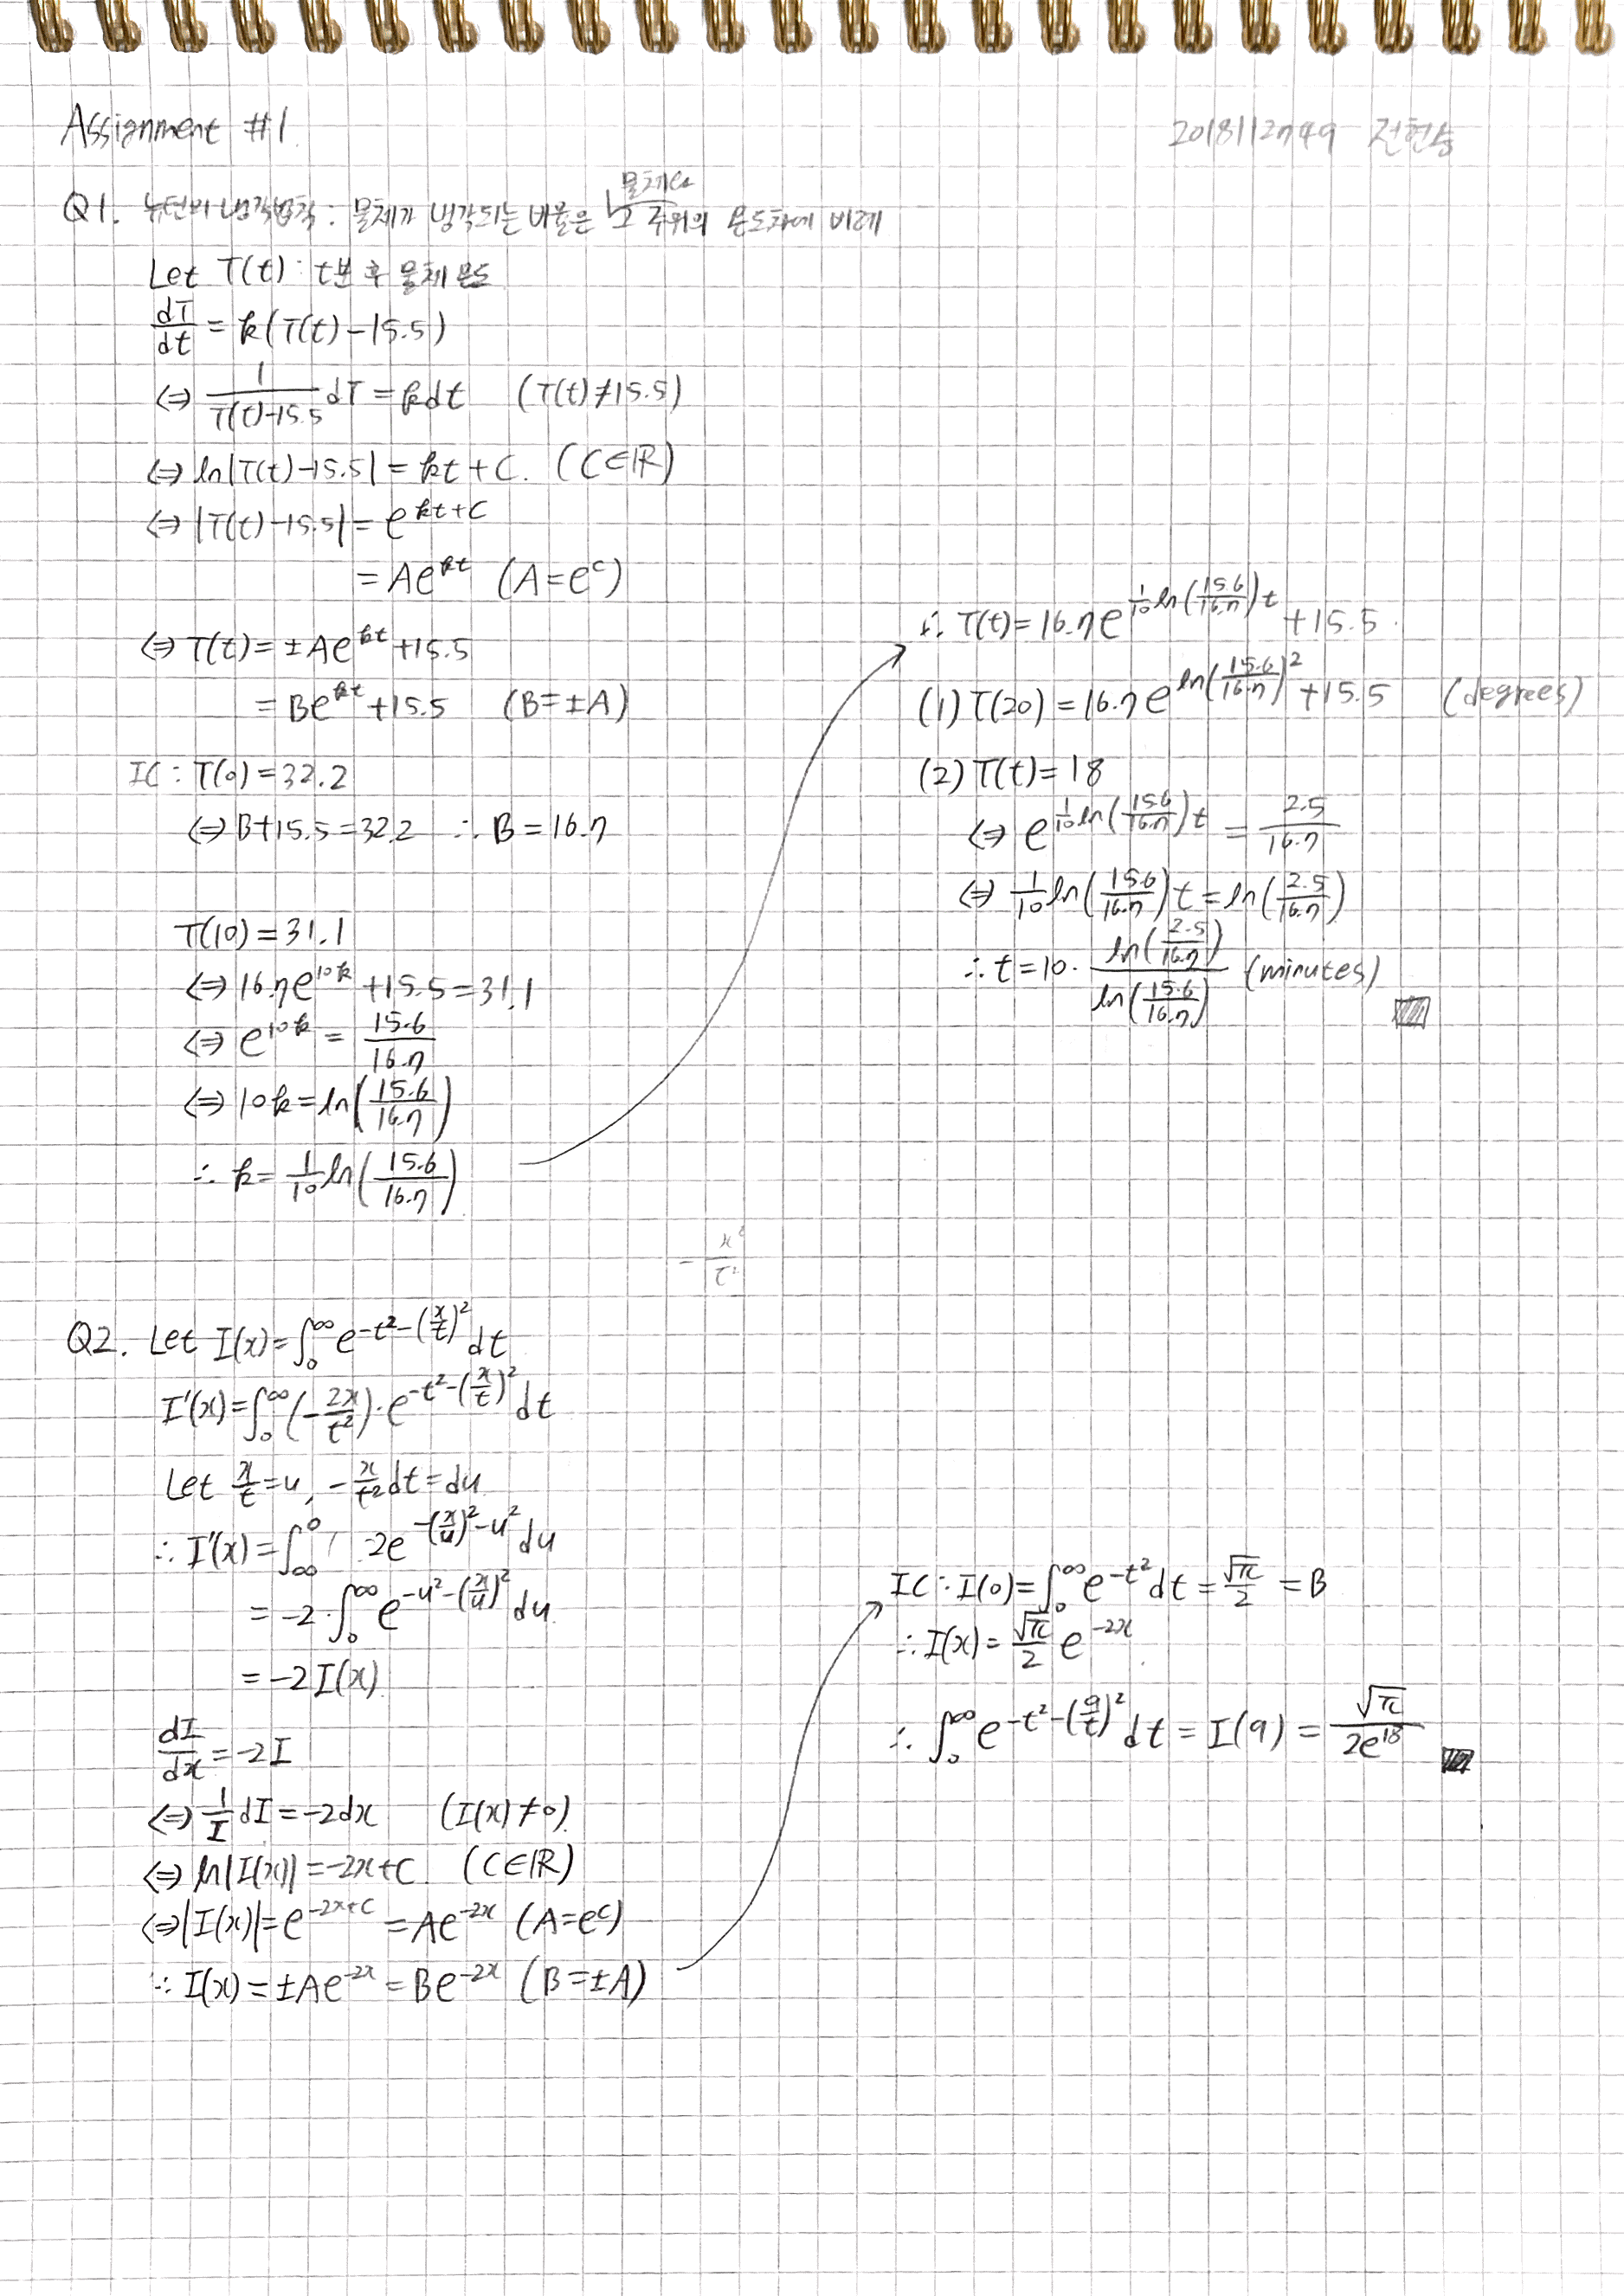 Assignment #1.
2018112749 전현승
Q1. 뉴턴의 냉각법칙 : 물체가 냉각되는 비율은 물체와 그 주위의 온도차에 비례
Let T(t) : t분 후 물체 온도
dT/dt = k(T(t)-15.5)
⇔ 1/(T(t)-15.5) dT = kdt (T(t)≠15.5)
⇔ ln|T(t)-15.5| = kt+C. (C∈ℝ)
⇔ |T(t)-15.5| = e^(kt+C)
= Ae^(kt) (A=e^C)
⇔ T(t) = ±Ae^(kt)+15.5
= Be^(kt)+15.5 (B=±A)
IC : T(0)=32.2
⇔ B+15.5=32.2 ∴ B=16.7
T(10)=31.1
⇔ 16.7e^(10k)+15.5=31.1
⇔ e^(10k) = 15.6/16.7
⇔ 10k=ln(15.6/16.7)
∴ k=1/10 ln(15.6/16.7)
∴ T(t)=16.7e^(1/10 ln(15.6/16.7)t)+15.5.
(1) T(20)=16.7e^(ln(15.6/16.7)^2)+15.5 (degrees)
(2) T(t)=18
⇔ e^(1/10 ln(15.6/16.7)t) = 2.5/16.7
⇔ 1/10 ln(15.6/16.7)t=ln(2.5/16.7)
∴ t=10· ln(2.5/16.7)/ln(15.6/16.7) (minutes)
Q2. Let I(x)=∫_0^∞ e^(-t²-(x/t)²)dt
I'(x)=∫_0^∞ (-2x/t²)·e^(-t²-(x/t)²)dt
Let x/t=u, -x/t² dt=du
∴ I'(x)=∫_∞^0 2e^(-(x/u)²-u²)du
= -2·∫_0^∞ e^(-u²-(x/u)²)du
= -2I(x)
dI/dx=-2I
⇔ 1/I dI=-2dx (I(x)≠0)
⇔ ln|I(x)|=-2x+C. (C∈ℝ)
⇔ |I(x)|=e^(-2x+C) =Ae^(-2x) (A=e^C)
∴ I(x)=±Ae^(-2x)=Be^(-2x) (B=±A)
IC : I(0)=∫_0^∞ e^(-t²)dt=√π/2 =B
∴ I(x)=√π/2 e^(-2x)
∴ ∫_0^∞ e^(-t²-(9/t)²)dt=I(9)=√π/(2e^18)